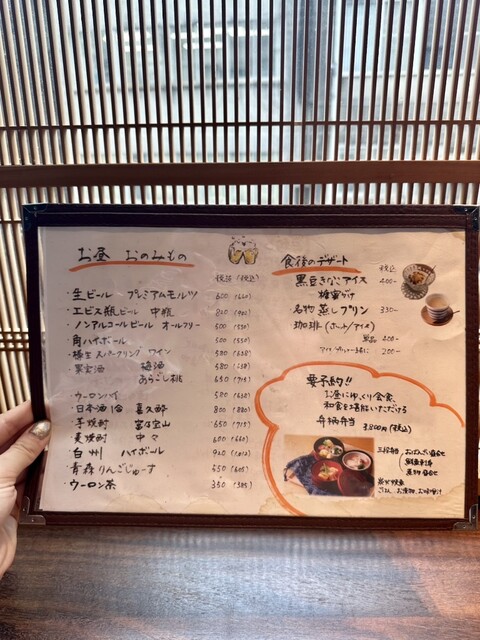 お昼 おのみもの
税抜 (税込)
・生ビール プレミアムモルツ 600 (660)
・エビス瓶ビール 中瓶 820 (902)
・ノンアルコールビール オールフリー 500 (550)
・角ハイボール 500 (550)
スパークリング ワイン 580 (638)
・果実酒 梅酒 580 (638)
あらごし桃 650 (715)
・ウーロンハイ 580 (638)
・日本酒1合 喜久酔 800 (880)
・芋焼酎 富乃宝山 650 (715)
・麦焼酎 中々 600 (660)
・白州 ハイボール 920 (1012)
・青森りんごじゅーす 550 (605)
・ウーロン茶 350 (385)
食後のデザート
税込
黒豆きなこアイス 400-
糖蜜がけ
名物 蒸しプリン 330-
珈琲 (ホット/アイス)
単品 400-
200-
要予約!!
お昼にゆっくり会食、
和食をご堪能いただける
弁柄弁当 3,800円 (税込)
三段
おばんざい盛合せ
煮物
ごはん、お漬物、お味噌汁